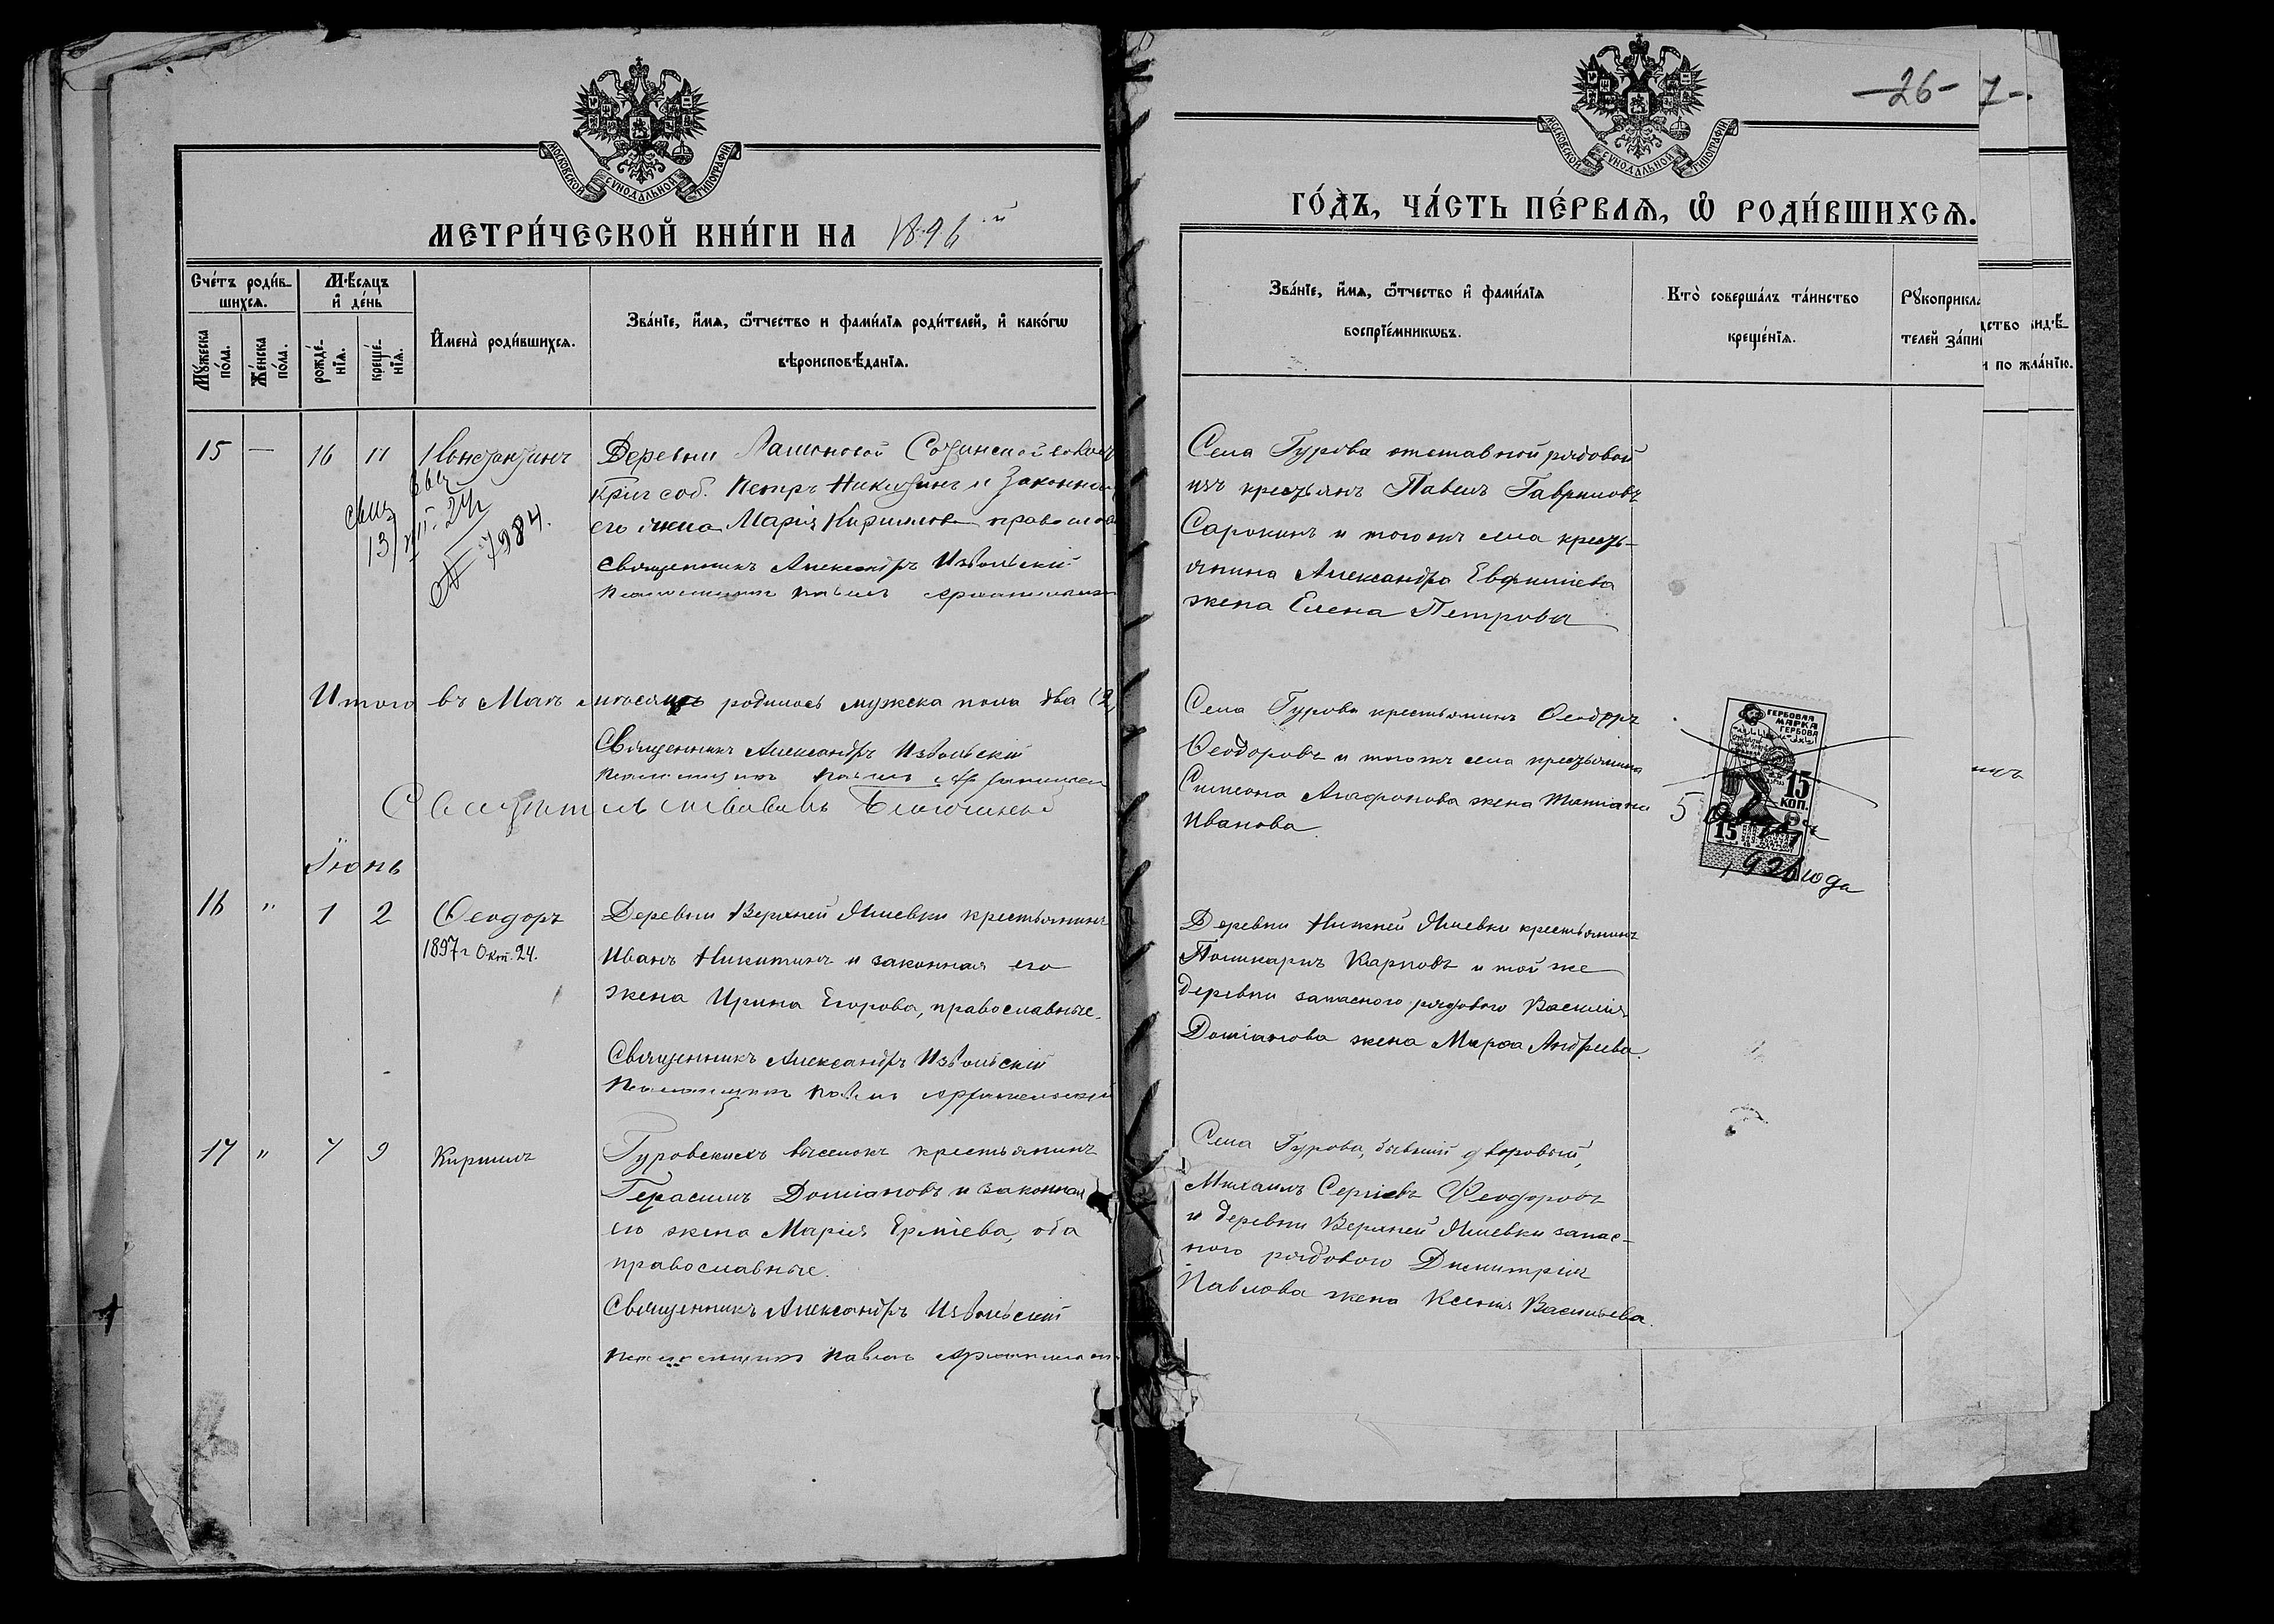 МОСКОВСКОЙ СУНОДАЛЬНОЙ ТИПОГРАФІИ
МЕТРИ́ЧЕСКОЙ КНИ́ГИ НА 1896 й
Сче́тъ роди́в-
шихсѧ.
Мѣ́сяцъ
и҆ де́нь
Му́жеска
по́ла.
Же́нска
по́ла.
рожде́-
нїѧ.
креще́-
нїѧ.
И҆мена̀ роди́вшихсѧ.
Зва́нїе, и҆́мѧ, ѻ҆́тчество и фами́лїѧ роди́телей, и҆ како́гѡ
вѣроисповѣ́данїѧ.
15 — 16 17 Константинъ
13
№ 7984.
Деревни
соб. Петръ Никитинъ и законная
его жена Марія Кирилова
Священникъ Александръ Извольскій
Псаломщикъ Павелъ
Итого въ Маѣ мѣсяцѣ родилось мужска пола два (2)
Священникъ Александръ Извольскій
Псаломщикъ Павелъ
Іюнь
16 " 1 2 Ѳеодоръ
1897 г Окт. 24.
Деревни Верхней Ялиевки крестьянинъ
Иванъ Никитинъ и законная его
жена Ирина Егорова, православные.
Священникъ Александръ Извольскій
Псаломщикъ Павелъ
17 " 7 9 Кириллъ
Гуровскихъ выселокъ крестьянинъ
Герасимъ Доміановъ и законная
его жена Марія Ерміева, оба
православные.
Священникъ Александръ Извольскій
Псаломщикъ Павелъ
МОСКОВСКОЙ СУНОДАЛЬНОЙ ТИПОГРАФІИ
—26— 7—.
ГО́ДЪ, ЧА́СТЬ ПЕ́РВАѦ, Ѽ РОДИ́ВШИХСѦ.
Зва́нїе, и҆́мѧ, ѻ҆́тчество и҆ фами́лїѧ
воспрїе́мникѡвъ.
Кто̀ соверша́лъ та́инство
креще́нїѧ.
Рꙋкоприкла
телей за́пи
Села Гурова отставной рядовой
изъ крестьянъ Павелъ Гавриловъ
Сарокинъ и того жъ села кресть-
янина Александра Евфиміева
жена Елена Петрова
Села Гурова крестьянинъ Ѳеодоръ
Ѳеодоровъ и того жъ села крестьянина
Симеона Агафонова жена Татіана
Иванова
ГЕРБОВАЯ
МАРКА
ГЕРБОВА
15
КОП.
15
5
1926 года
Деревни Нижней Ялиевки крестьянинъ
Поликарпъ Карповъ и той же
деревни запасного рядового Василія
Доміанова жена Марѳа Андреева.
Села Гурова, бывший дворовый,
Михаилъ Сергіевъ Ѳеодоровъ
и деревни Верхней Ялиевки запас-
ного рядового Димитрія
Павлова жена Ксенія Васильева.